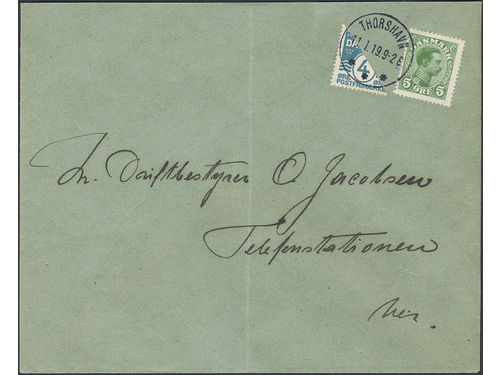 THORSHAVN
11.1.19.9-2E
DA
4
ØRE ØR
POSTFRIMÆRKE
DANMARK
5 ØRE 5
Hr. Driftbestyrer O. Jacobsen
Telefonstationen
her.